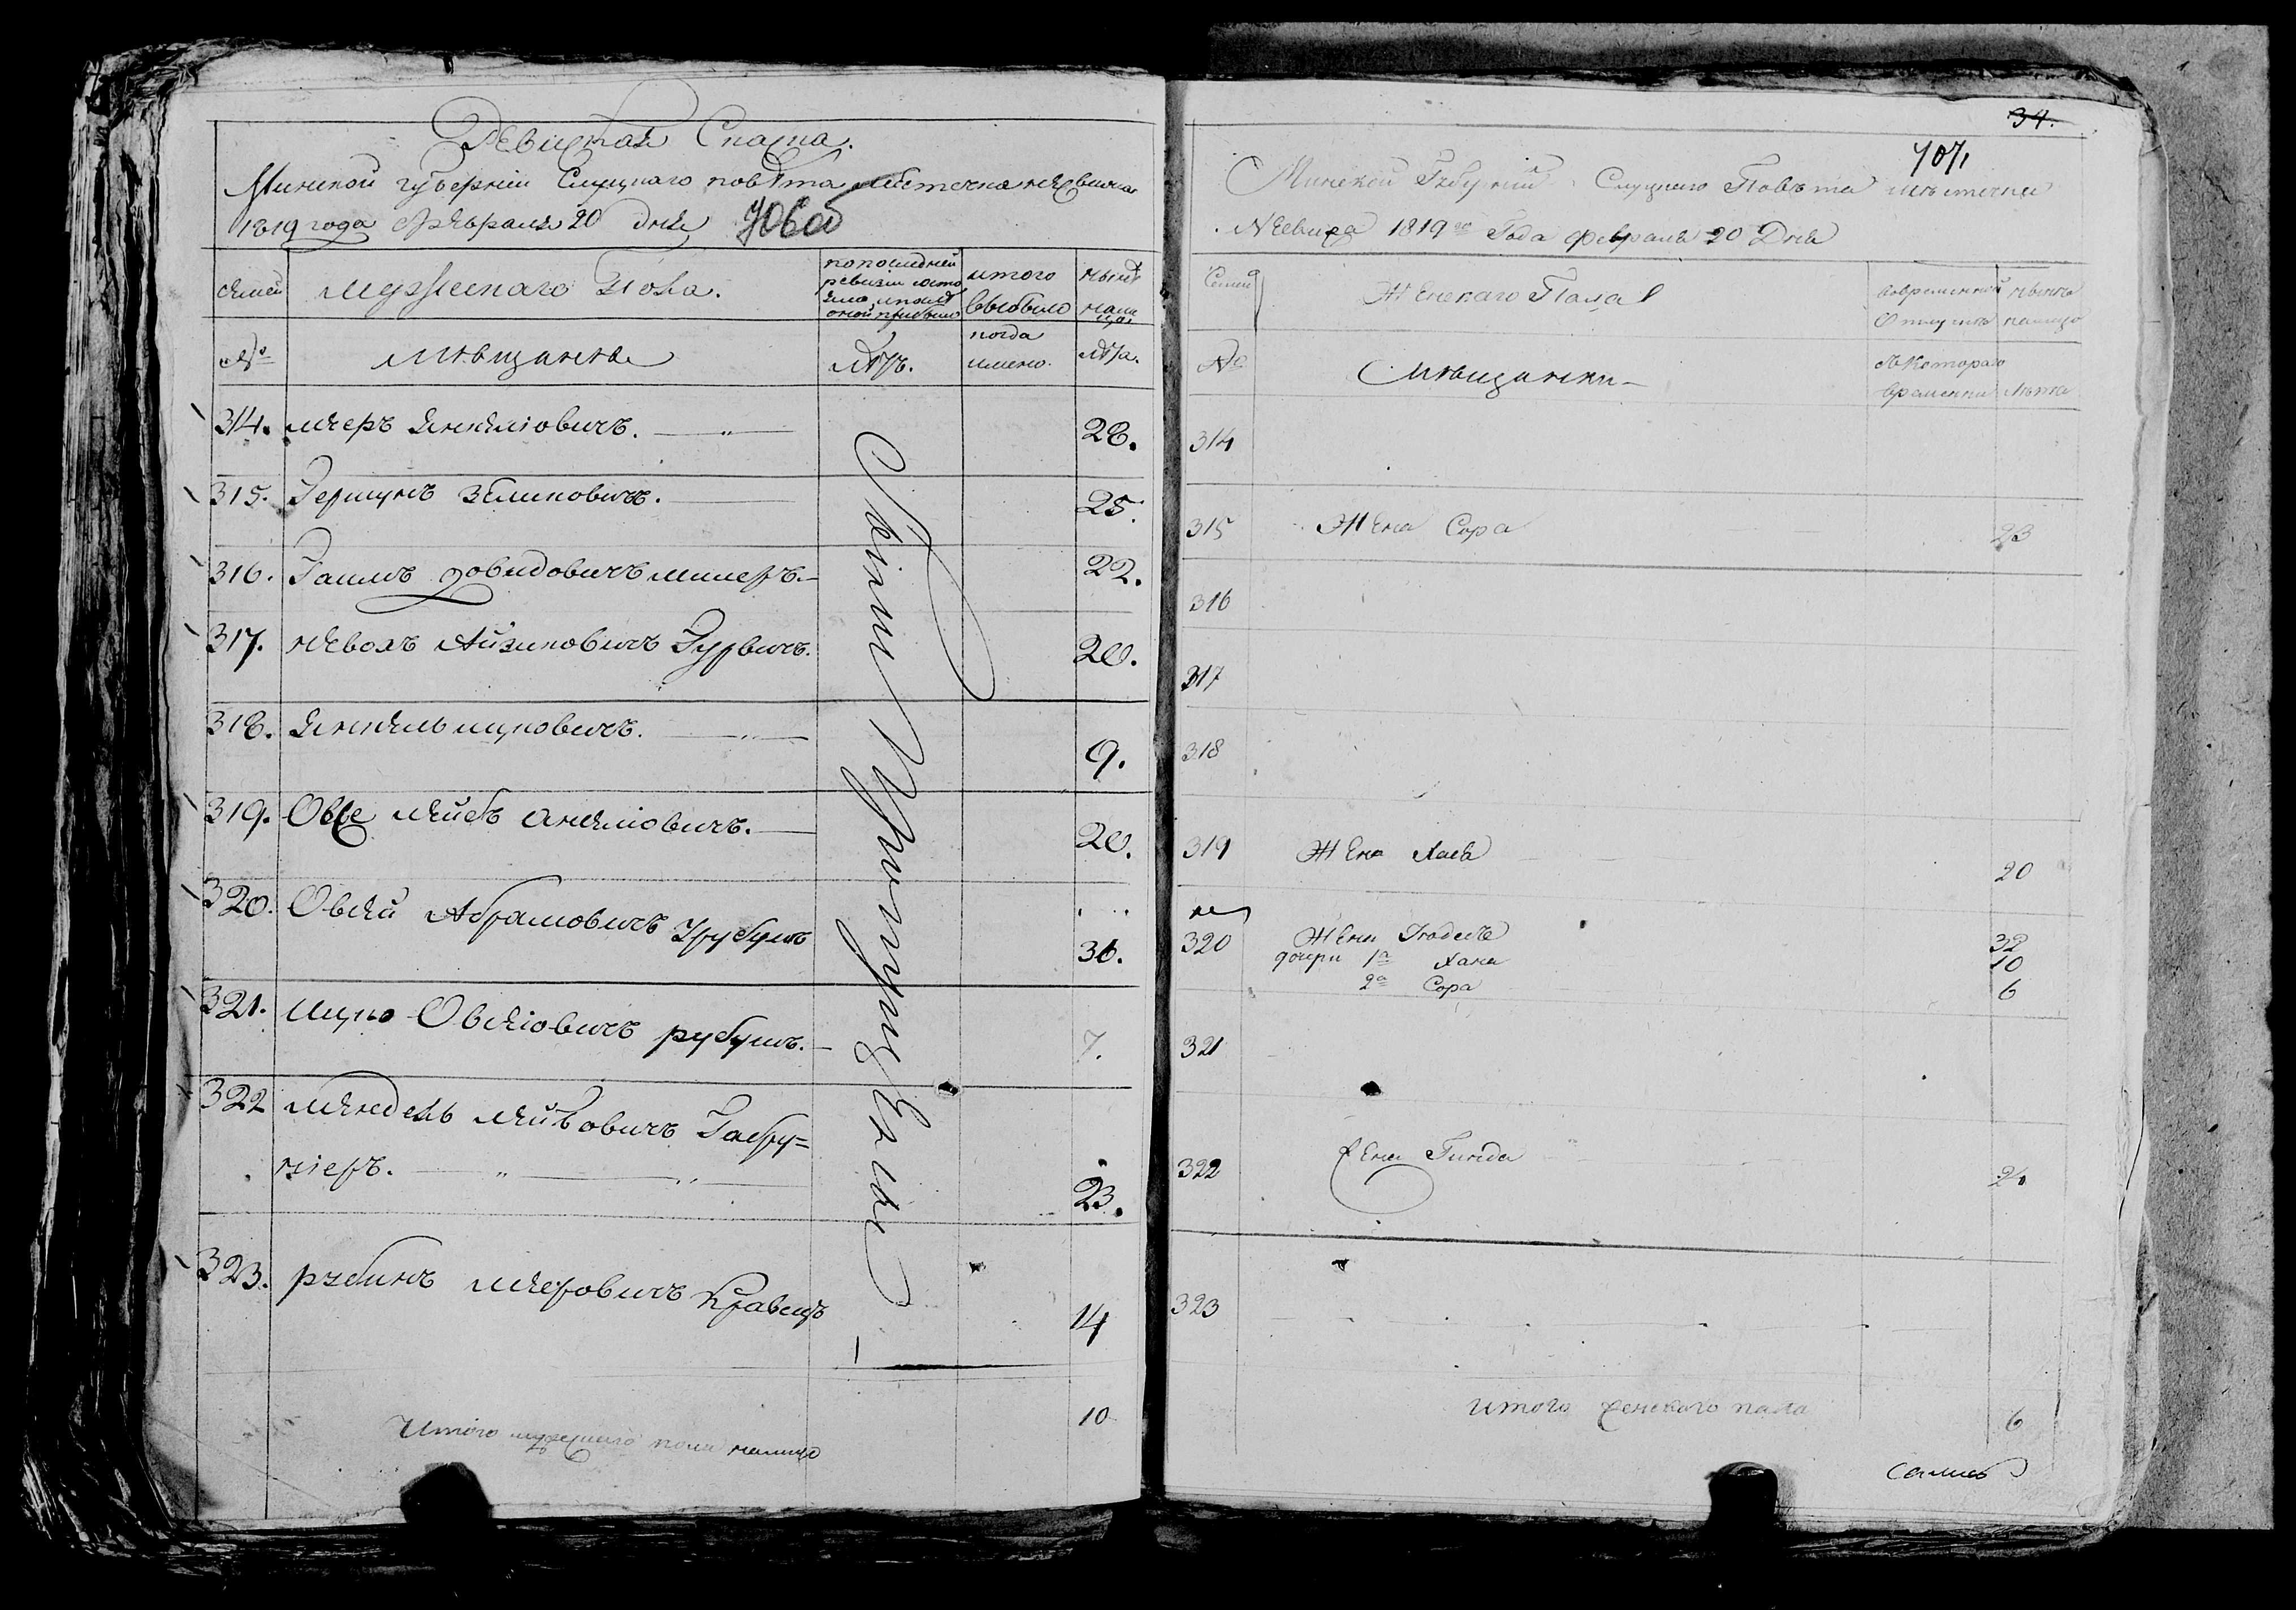 Ревизкая Сказка.
Минской губернии Слуцкаго повѣта мѣстечка Несвижа
1819 года февраля 20 дня 706об
семей мужескаго пола. по последней
ревизіи состо
яло, и после
оной прибыло итого
выбыло нынѣ
на ли
цо.
№ мѣщанѣ лѣтъ. когда
имено. лѣта.
314. мееръ Янкеліовичъ. 28.
315. Гершунъ Зеликовичъ. 25.
316. Гаимъ довидовичъ милеръ. 22.
317. невахъ Айзиковичъ Гурвичъ. 20.
318. Янкель ицковичъ. 9.
319. Овсе лейбъ анкеліовичъ. 20.
320. Овсей Абрамовичъ 36.
321. Ицко Овсеіовичъ рубушъ. 7.
322 мендель лейбовичъ Габру=
ніеръ. 23.
323. рубинъ мееровичъ Кравецъ 14
Итого мужескаго пола налицо 10
34.
707,
Минской Губерний Слуцкаго Повѣта мѣстечка
Несвижа 1819го Года февраля 20 Дня
Семей Женскаго Пола вовременной
Отлучкѣ нынѣ
налицо
№ Мѣщанки съ Котораго
времени лѣта
314
315 Жена Сора 23
316
317
318
319 Жена Хая 20
320 Жена 32
дочери 1я Хана 10
2я Сора 6
321
322 Жена Гинда
323
итого женского пола 6